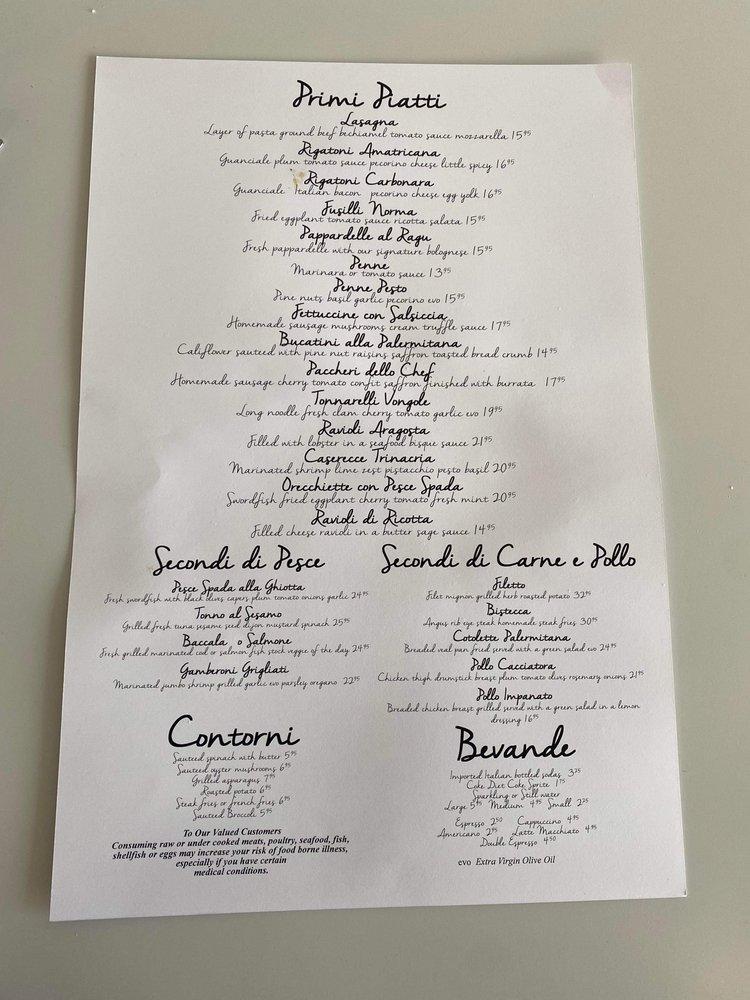 Primi Piatti
Lasagna
Layer of pasta ground beef bechiamel tomato sauce mozzarella 15⁹⁵
Rigatoni Amatricana
Guanciale plum tomato sauce pecorino cheese little spicy 16⁹⁵
Rigatoni Carbonara
Guanciale Italian bacon pecorino cheese egg yolk 16⁹⁵
Fusilli Norma
Fried eggplant tomato sauce ricotta salata 15⁹⁵
Pappardelle al Ragu
Fresh pappardelle with our signature bolognese 15⁹⁵
Penne
Marinara or tomato sauce 13⁹⁵
Penne Pesto
Pine nuts basil garlic pecorino evo 15⁹⁵
Fettuccine con Salsiccia
Homemade sausage mushrooms cream truffle sauce 17⁹⁵
Bucatini alla Palermitana
Califlower sauteed with pine nut raisins saffron toasted bread crumb 14⁹⁵
Paccheri dello Chef
Homemade sausage cherry tomato confit saffron finished with burrata 17⁹⁵
Tonnarelli Vongole
Long noodle fresh clam cherry tomato garlic evo 19⁹⁵
Ravioli Aragosta
Filled with lobster in a seafood bisque sauce 21⁹⁵
Caserecce Trinacria
Marinated shrimp lime zest pistacchio pesto basil 20⁹⁵
Orecchiette con Pesce Spada
Swordfish fried eggplant cherry tomato fresh mint 20⁹⁵
Ravioli di Ricotta
Filled cheese ravioli in a butter sage sauce 14⁹⁵
Secondi di Pesce
Pesce Spada alla Ghiotta
Fresh swordfish with black olives capers plum tomato onions garlic 24⁹⁵
Tonno al Sesamo
Grilled fresh tuna sesame seed dijon mustard spinach 25⁹⁵
Baccala o Salmone
Fresh grilled marinated cod or salmon fish stock veggie of the day 24⁹⁵
Gamberoni Grigliati
Marinated jumbo shrimp grilled garlic evo parsley oregano 22⁹⁵
Secondi di Carne e Pollo
Filetto
Filet mignon grilled herb roasted potato 32⁹⁵
Bistecca
Angus rib eye steak homemade steak fries 30⁹⁵
Cotolette Palermitana
Breaded veal pan fried served with a green salad evo 24⁹⁵
Pollo Cacciatora
Chicken thigh drumstick breast plum tomato olives rosemary onions 21⁹⁵
Pollo Impanato
Breaded chicken breast grilled served with a green salad in a lemon
dressing 16⁹⁵
Contorni
Sauteed spinach with butter 5⁹⁵
Sauteed oyster mushrooms 6⁹⁵
Grilled asparagus 7⁹⁵
Roasted potato 6⁹⁵
Steak fries or french fries 6⁹⁵
Sauteed Broccoli 5⁹⁵
To Our Valued Customers
Consuming raw or under cooked meats, poultry, seafood, fish,
shellfish or eggs may increase your risk of food borne illness,
especially if you have certain
medical conditions.
Bevande
Imported Italian bottled sodas 3²⁵
Coke Diet Coke Sprite 1⁷⁵
Sparkling or Still water
Large 5⁹⁵ Medium 4⁹⁵ Small 2²⁵
Espresso 2⁵⁰ Cappuccino 4⁹⁵
Americano 2⁹⁵ Latte Macchiato 4⁹⁵
Double Espresso 4⁵⁰
evo Extra Virgin Olive Oil